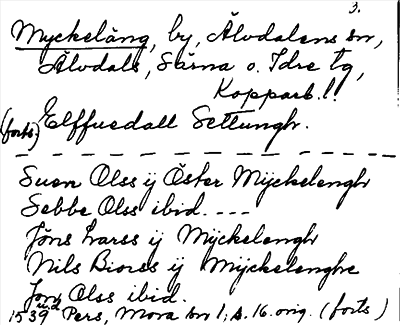 3.
Myckeläng, by, Älvdalens sn,
Älvdals, Särna o. Idre tg,
Kopparb. l.
(forts) Elffuedall Settungh.
Suen Olss ij Öster Mÿckelengh
Sebbe Olss ibid. ----
Jöns Larss ij Mÿckelengh
Nils Biorss ij Mÿckelenghe
Jon Olss ibid.
1539 Pers, Mora sn 1, s. 16. orig. (forts)